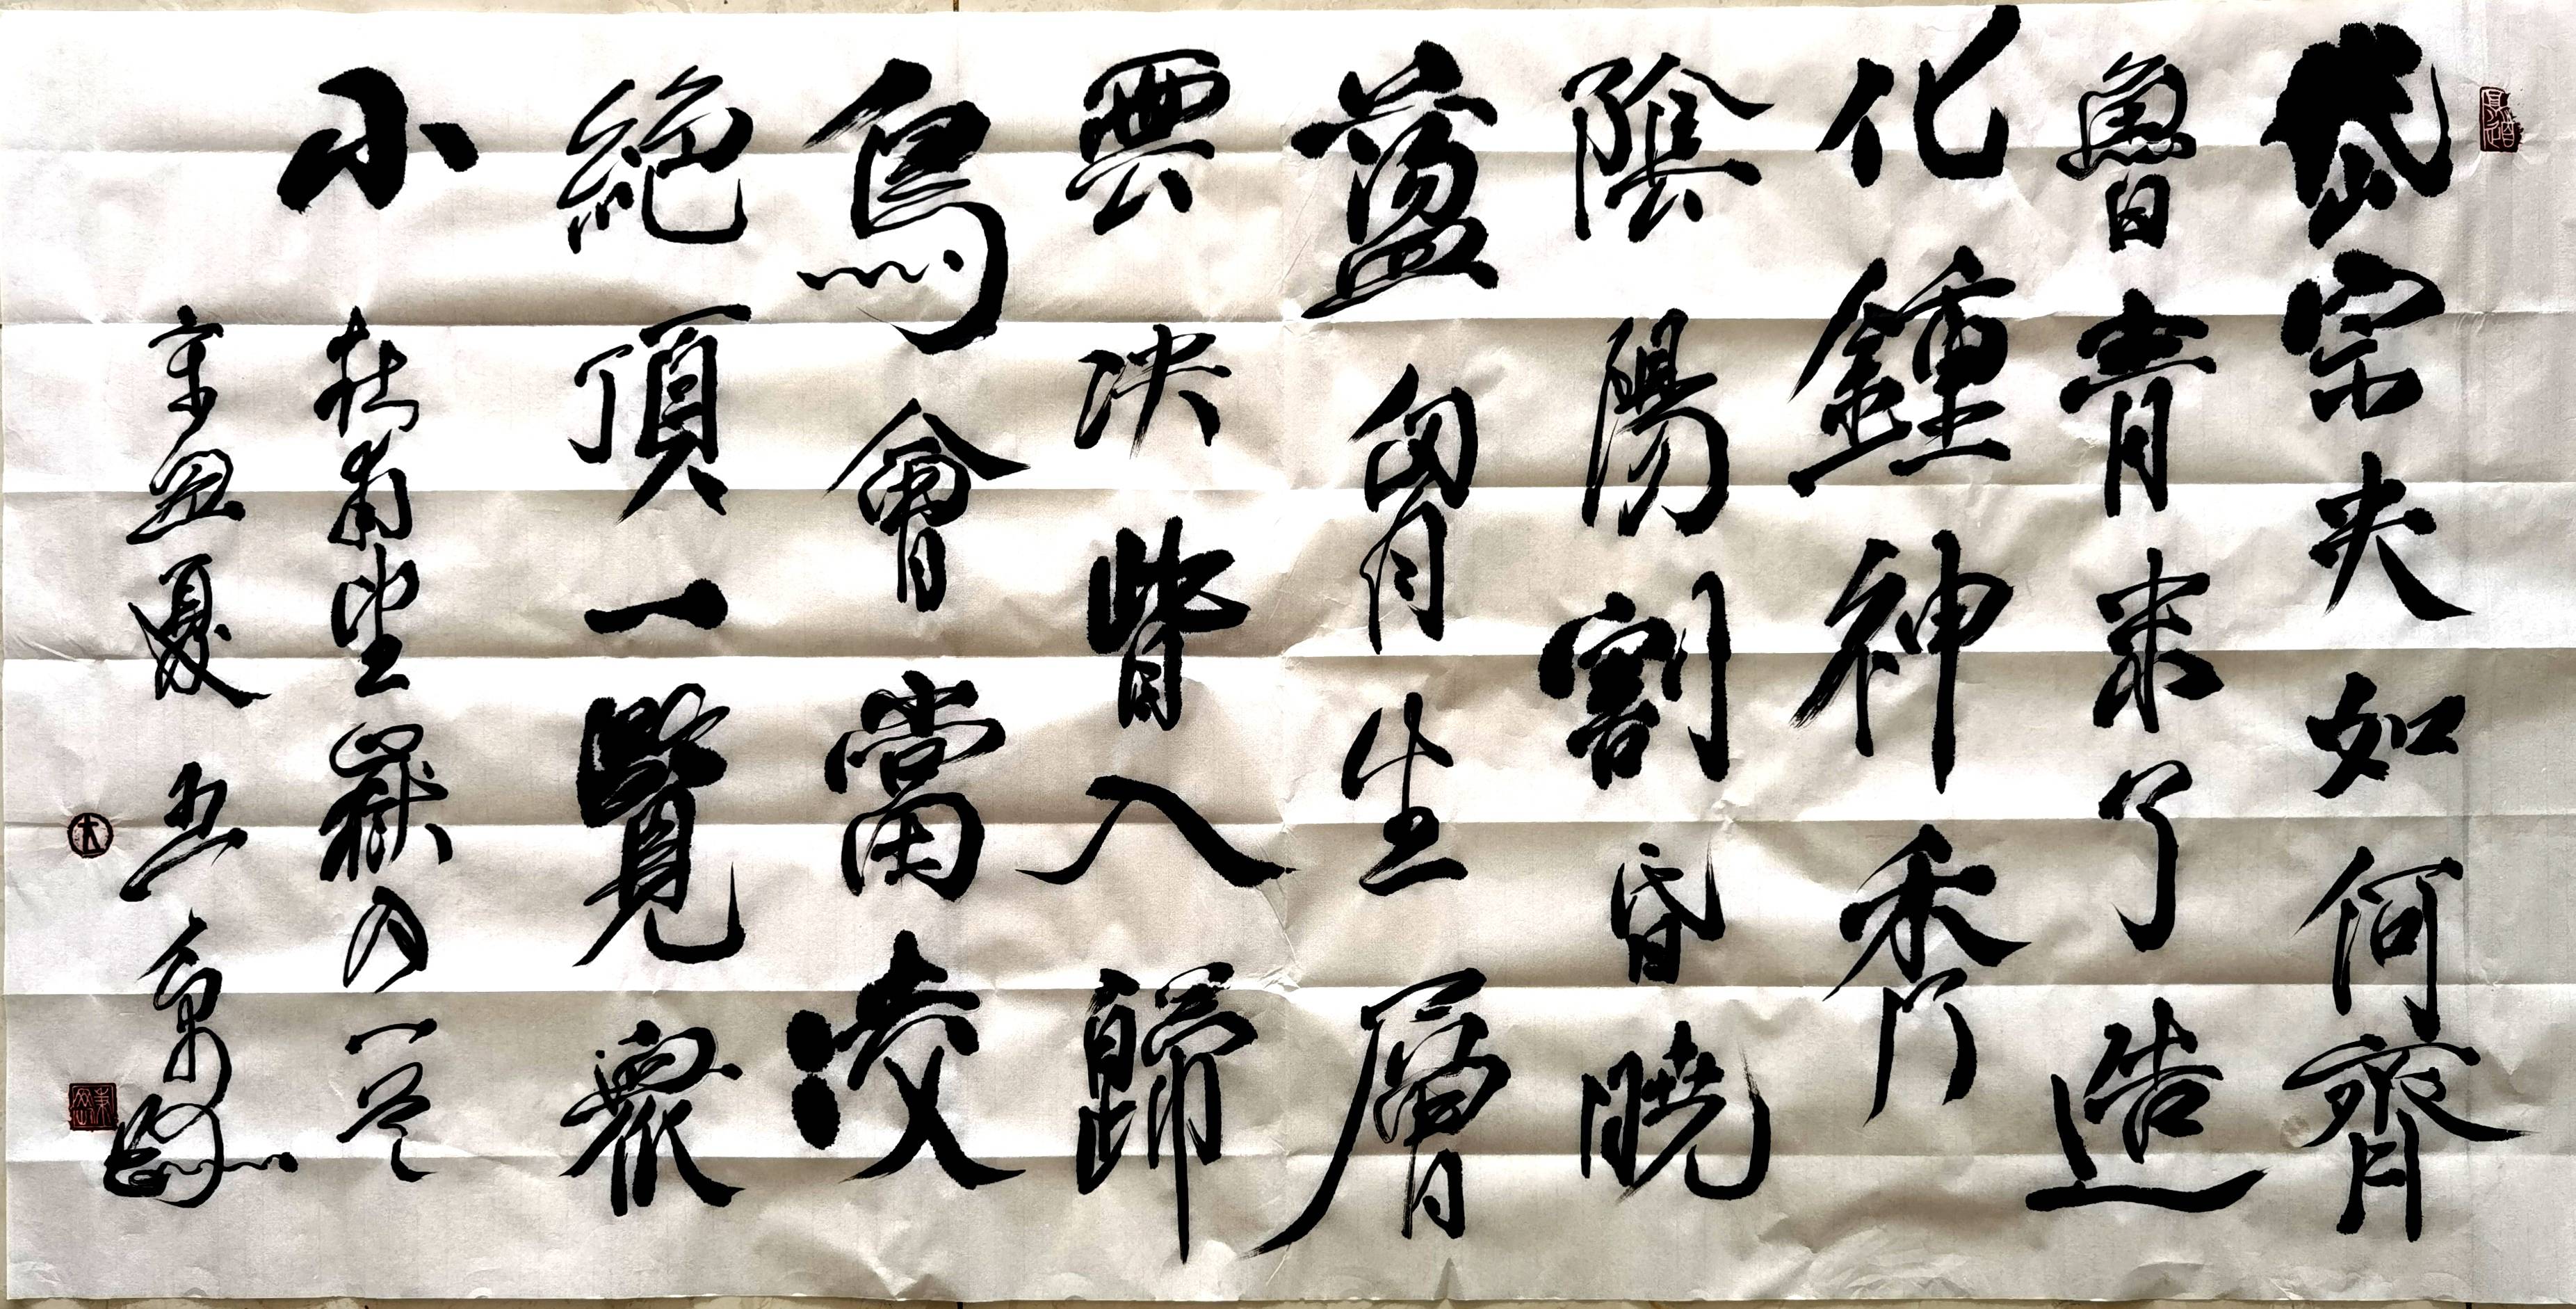 岱宗夫如何齊
魯青未了造
化鍾神秀
陰陽割昏曉
蘯胷生層
雲决眥入歸
鳥會當凌
絕頂一覽衆
小
杜甫望嶽
辛丑夏